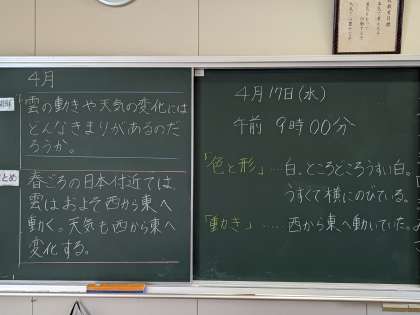 4月
雲の動きや天気の変化には
どんなきまりがあるのだ
ろうか。
まとめ
春ごろの日本付近では、
雲はおよそ西から東へ
動く。天気も西から東へ
変化する。
4月17日(水)
午前 9時00分
「色と形」…白。ところどころうすい白。
うすくて横にのびている。
「動き」……西から東へ動いていた。